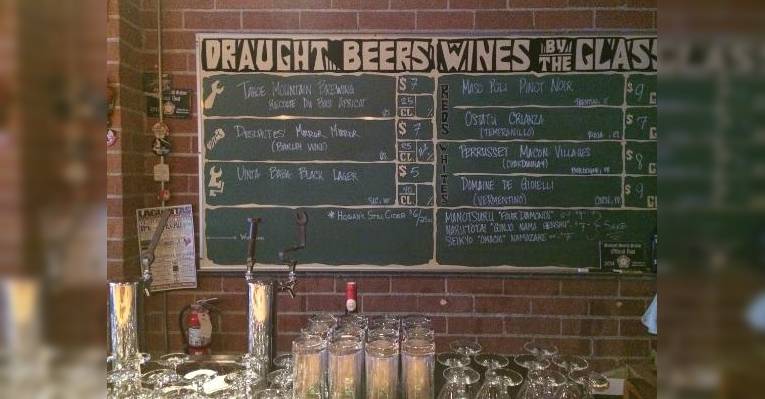 DRAUGHT BEERS
TAHOE MOUNTAIN BREWING $7
RECOLTE DU BOIS APRICOT 25 CL
DESCHUTES MIRROR MIRROR $7
(BARLEY WINE) 25 CL
UINTA BABA BLACK LAGER $5
SLC, UT 40 CL
* HOGAN'S STILL CIDER $6/25CL
WINES BY THE GLASS
REDS
MASO POLI PINOT NOIR $9
OSTATU CRIANZA $7
(TEMPRANILLO) RIOJA, SP.
WHITES
PERRUSSET MACON VILLAGES $8
(CHARDONNAY)
DOMAINE DE GIOIELLI $9
(VERMENTINO)
MANOTSURU "FOUR DIAMONDS"
NARUTOTAI "GINJO NAMA GENSHU"
SEIKYO "OMACHI" NAMAZAKE
LAGUNITAS